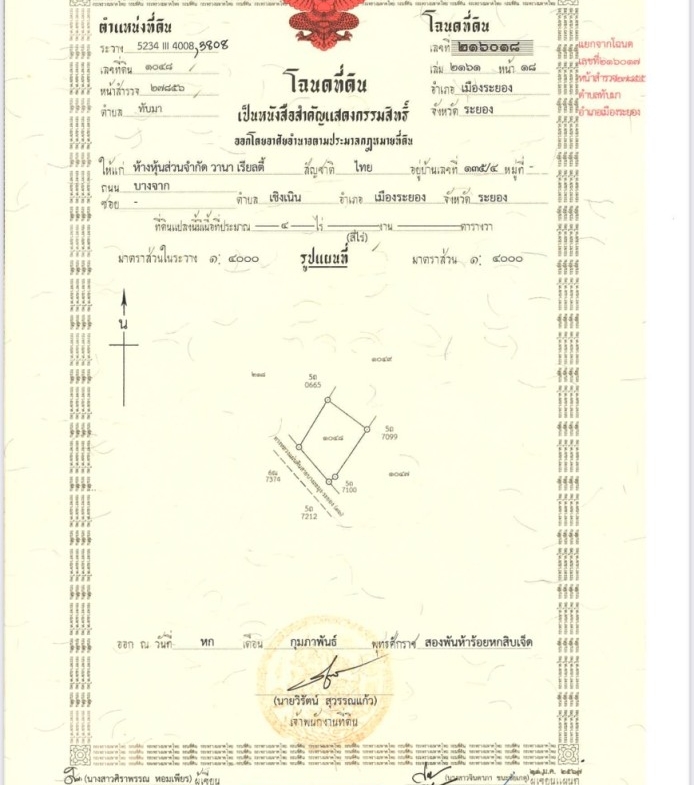 ตำแหน่งที่ดิน
ระวาง 5234 III 4008,3808
เลขที่ดิน ๑๐๔๘
หน้าสำรวจ ๒๗๘๕๖
ตำบล ทับมา
โฉนดที่ดิน
เลขที่ ๒๑๖๐๑๘
เล่ม ๒๑๖๑ หน้า ๑๘
อำเภอ เมืองระยอง
จังหวัด ระยอง
แยกจากโฉนด
เลขที่๒๑๖๐๑๗
ตำบลทับมา
อำเภอเมืองระยอง
โฉนดที่ดิน
เป็นหนังสือสำคัญแสดงกรรมสิทธิ์
ออกโดยอาศัยอำนาจตามประมวลกฎหมายที่ดิน
ให้แก่ ห้างหุ้นส่วนจำกัด วานา เรียลตี้ สัญชาติ ไทย อยู่บ้านเลขที่ ๑๓๕/๔ หมู่ที่ -
ถนน บางจาก
ซอย - ตำบล เชิงเนิน อำเภอ เมืองระยอง จังหวัด ระยอง
ที่ดินแปลงนี้มีเนื้อที่ประมาณ ๔ ไร่ งาน ตารางวา
(สี่ไร่)
มาตราส่วนในระวาง ๑: ๔๐๐๐ รูปแผนที่ มาตราส่วน ๑: ๔๐๐๐
น
๑๐๔๙
๒๑๘
5ถ
0665
5ถ
7099
๑๐๔๘
๑๐๔๗
7374
5ถ
7100
5ถ
7212
ออก ณ วันที่ หก เดือน กุมภาพันธ์ พุทธศักราช สองพันห้าร้อยหกสิบเจ็ด
(นายวิรัตน์ สุวรรณแก้ว)
เจ้าพนักงานที่ดิน
(นางสาวศิราพรรณ หอมเพียร) ผู้เขียน
ผู้เขียนแผนที่